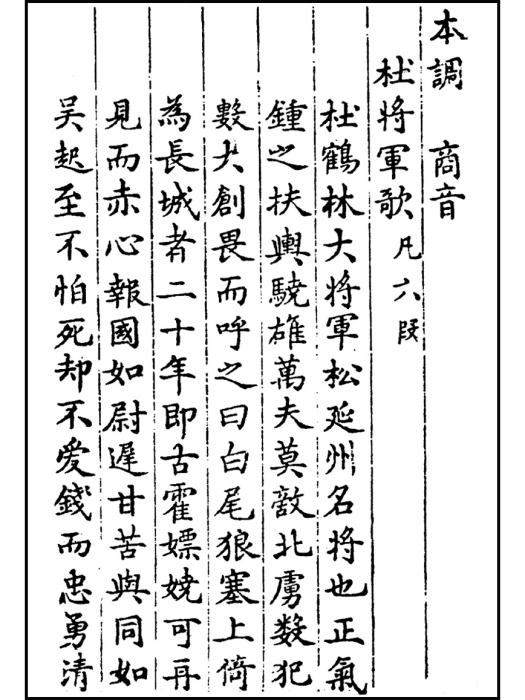 本調 商音
杜將軍歌 凡六段
杜鶴林大將軍松延州名將也正氣
鍾之扶輿驍雄萬夫莫敵北虜數犯
數大創畏而呼之曰白尾狼塞上倚
為長城者二十年即古霍嫖姚可再
見而赤心報國如尉遲甘苦與同如
吳起至不怕死却不爱錢而忠勇清